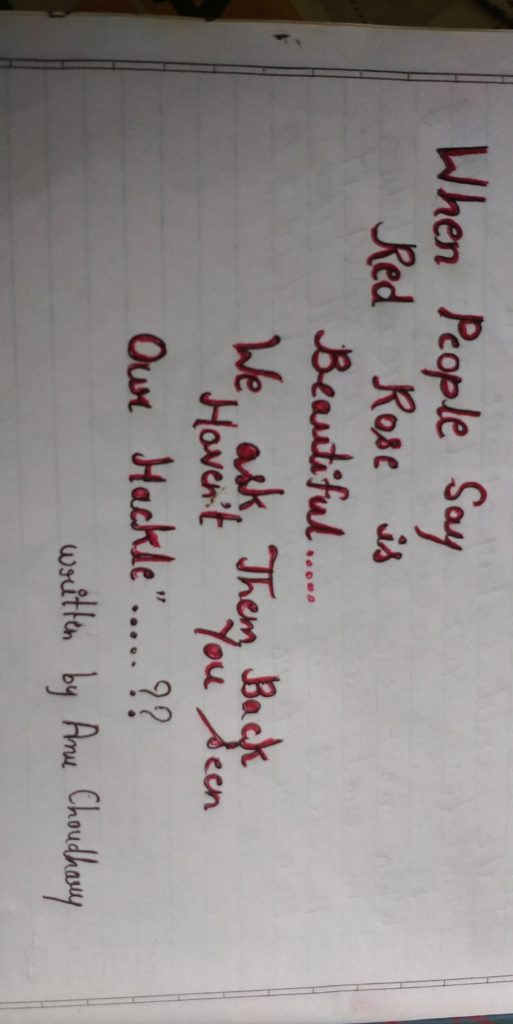 When People Say
Red Rose is
Beautiful.....
We ask Them Back
Haven't You Seen
Our Hackle".....??
written by Anu Choudhary